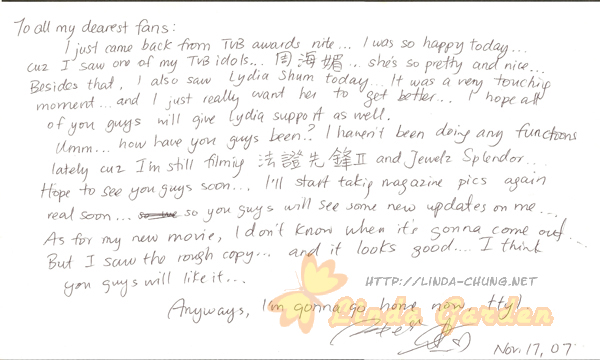 To all my dearest fans:
I just came back from TVB awards nite... I was so happy today...
cuz I saw one of my TVB idols... 周海媚... she's so pretty and nice...
Besides that, I also saw Lydia Shum today... It was a very touching
moment... and I just really want her to get better... I hope all
of you guys will give Lydia support as well.
Umm... how have you guys been? I haven't been doing any functions
lately cuz I'm still filming 法證先鋒II and Jewelz Splendor...
Hope to see you guys soon... I'll start takig magazine pics again
real soon... so you guys will see some new updates on me...
As for my new movie, I don't know when it's gonna come out...
But I saw the rough copy... and it looks good... I think
you guys will like it...
HTTP://LINDA-CHUNG.NET
Linda Garden
Anyways, I'm gonna go home now, ttyl
Nov. 17, 07